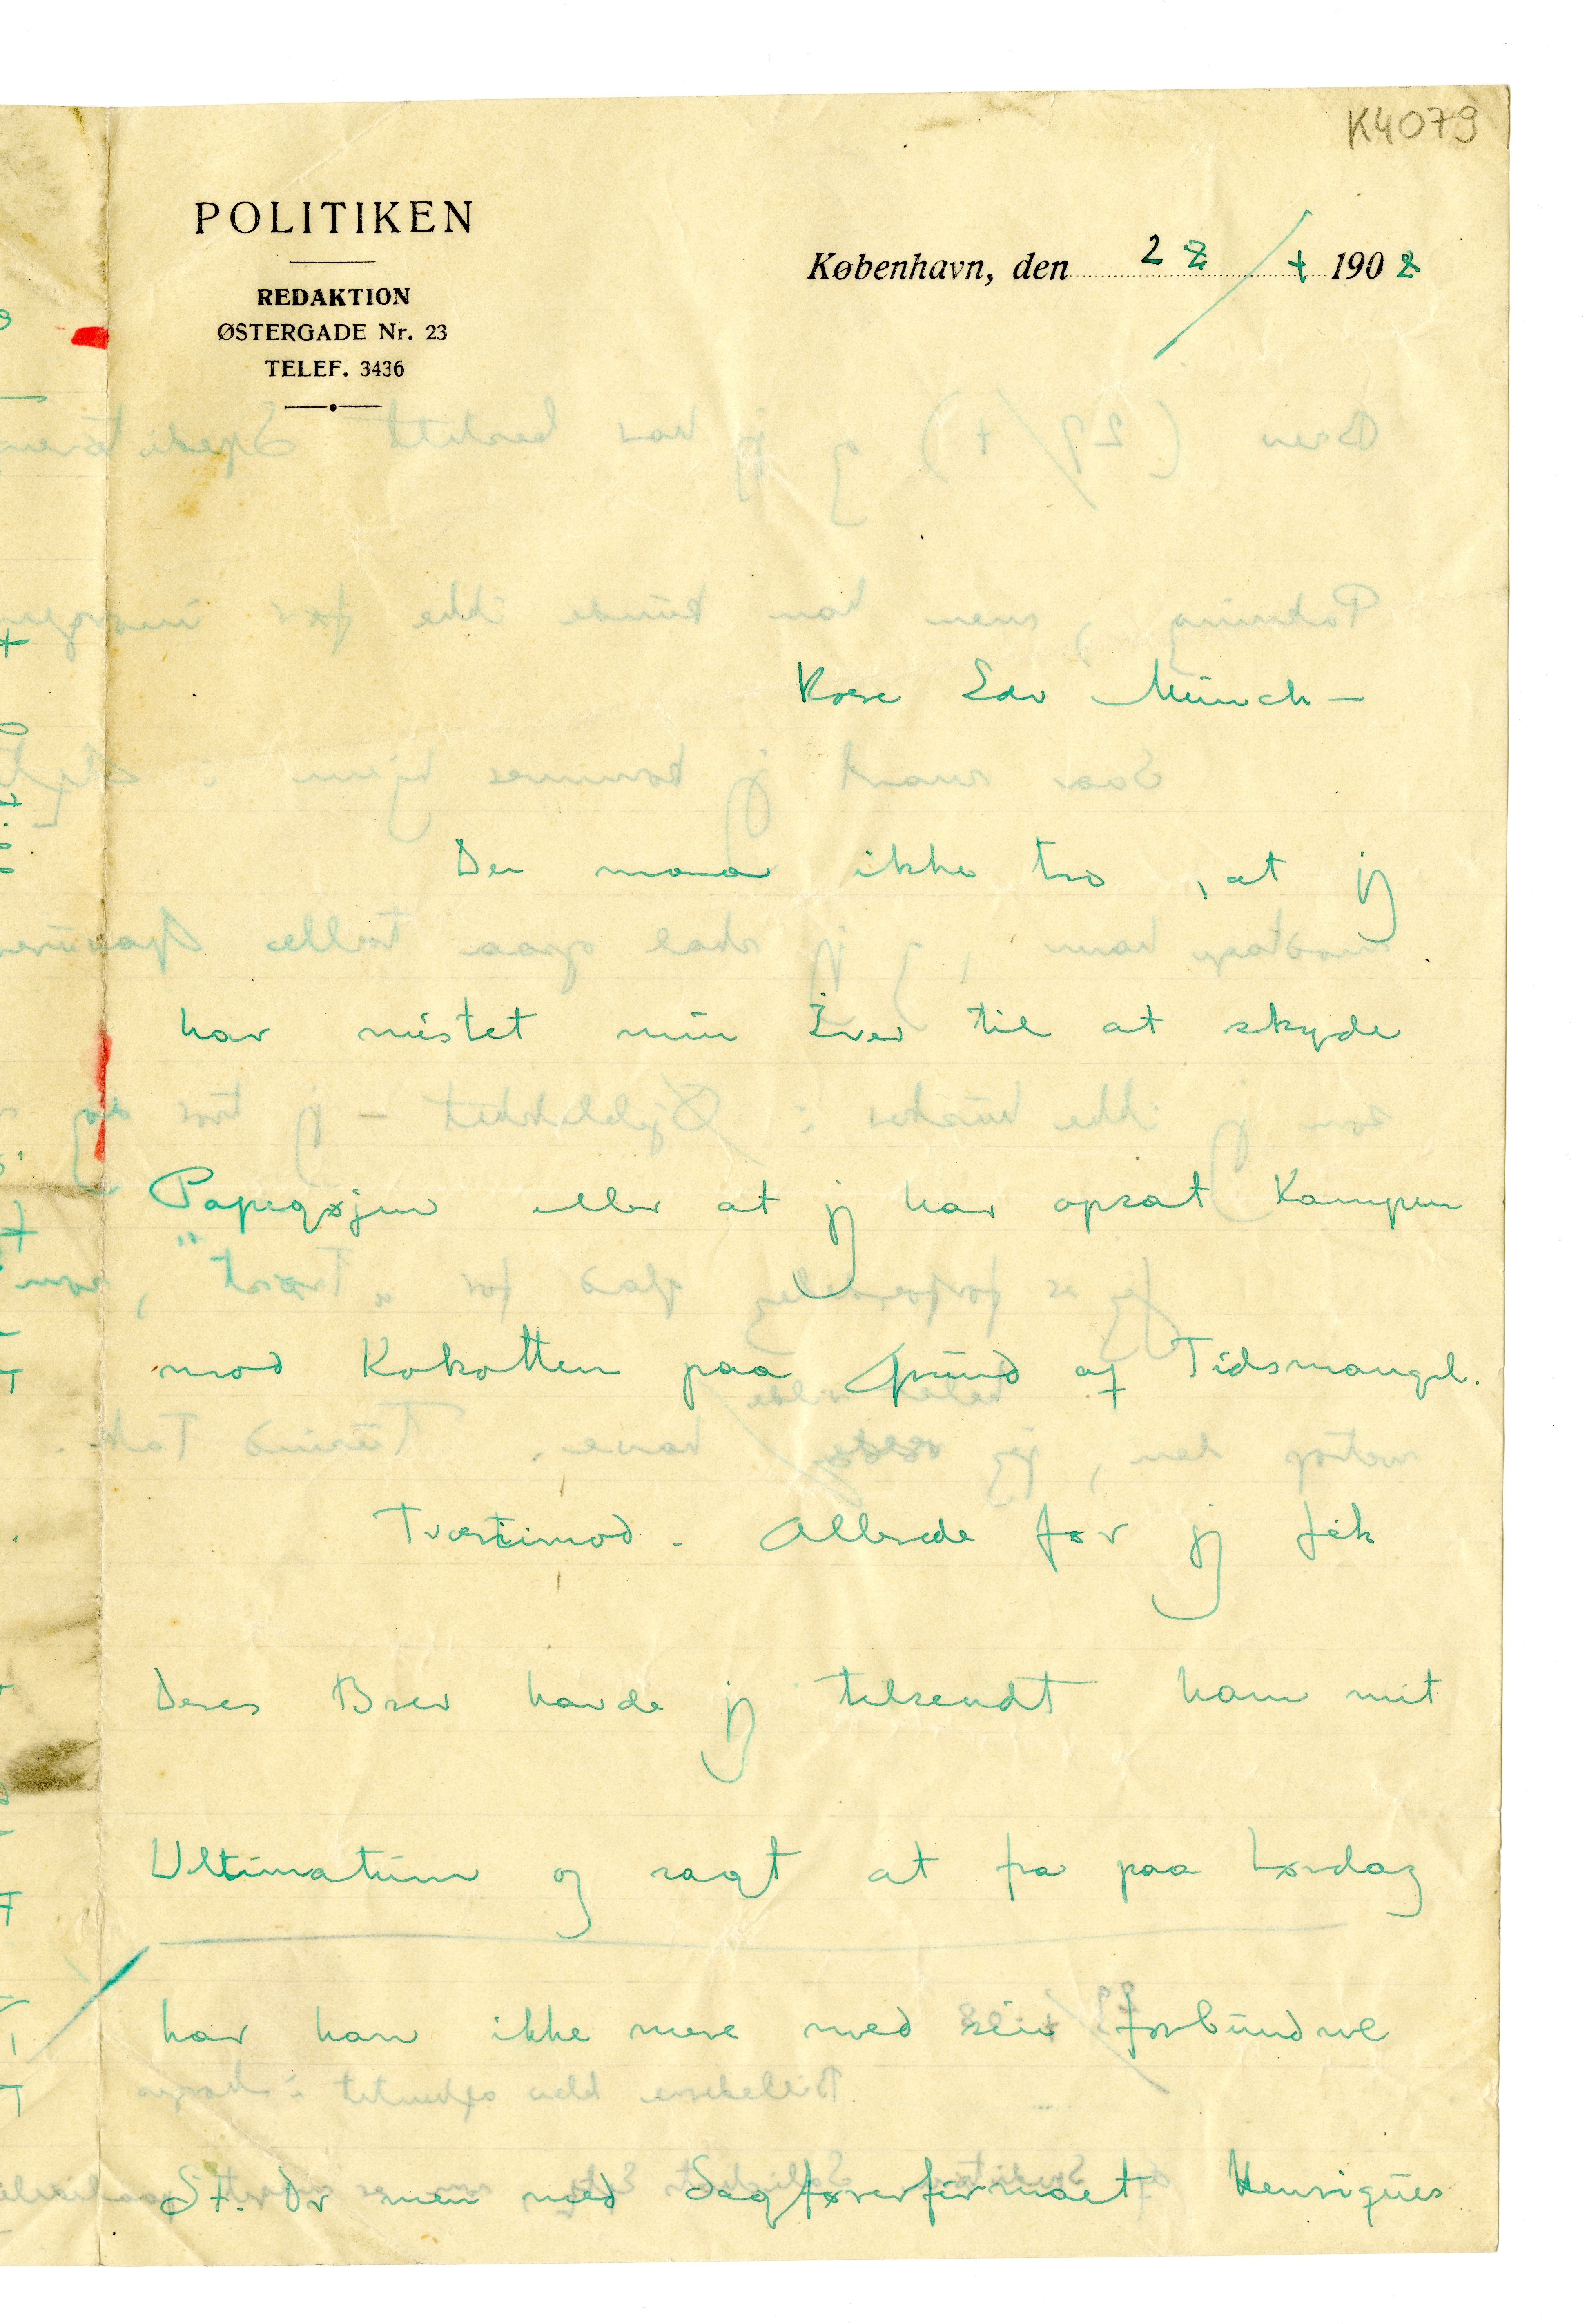 K4079
POLITIKEN
REDAKTION
ØSTERGADE Nr. 23
TELEF. 3436
København, den 22/4 1908
Kære Edv Münch –
De maa ikke tro, at jeg
har mistet min Iver til at skyde
Papegøjen eller at jeg har opsat Kampen
mod Kokotten paa Grund af Tidsmangel.
Tværtimod. Allerede før jeg fik
Deres Brev havde jeg tilsendt ham mit
Ultimatum og sagt at fra paa Lørdag
har han ikke mere med sin forbundne
St. Dr men med Sagførerfirmaet Henriques